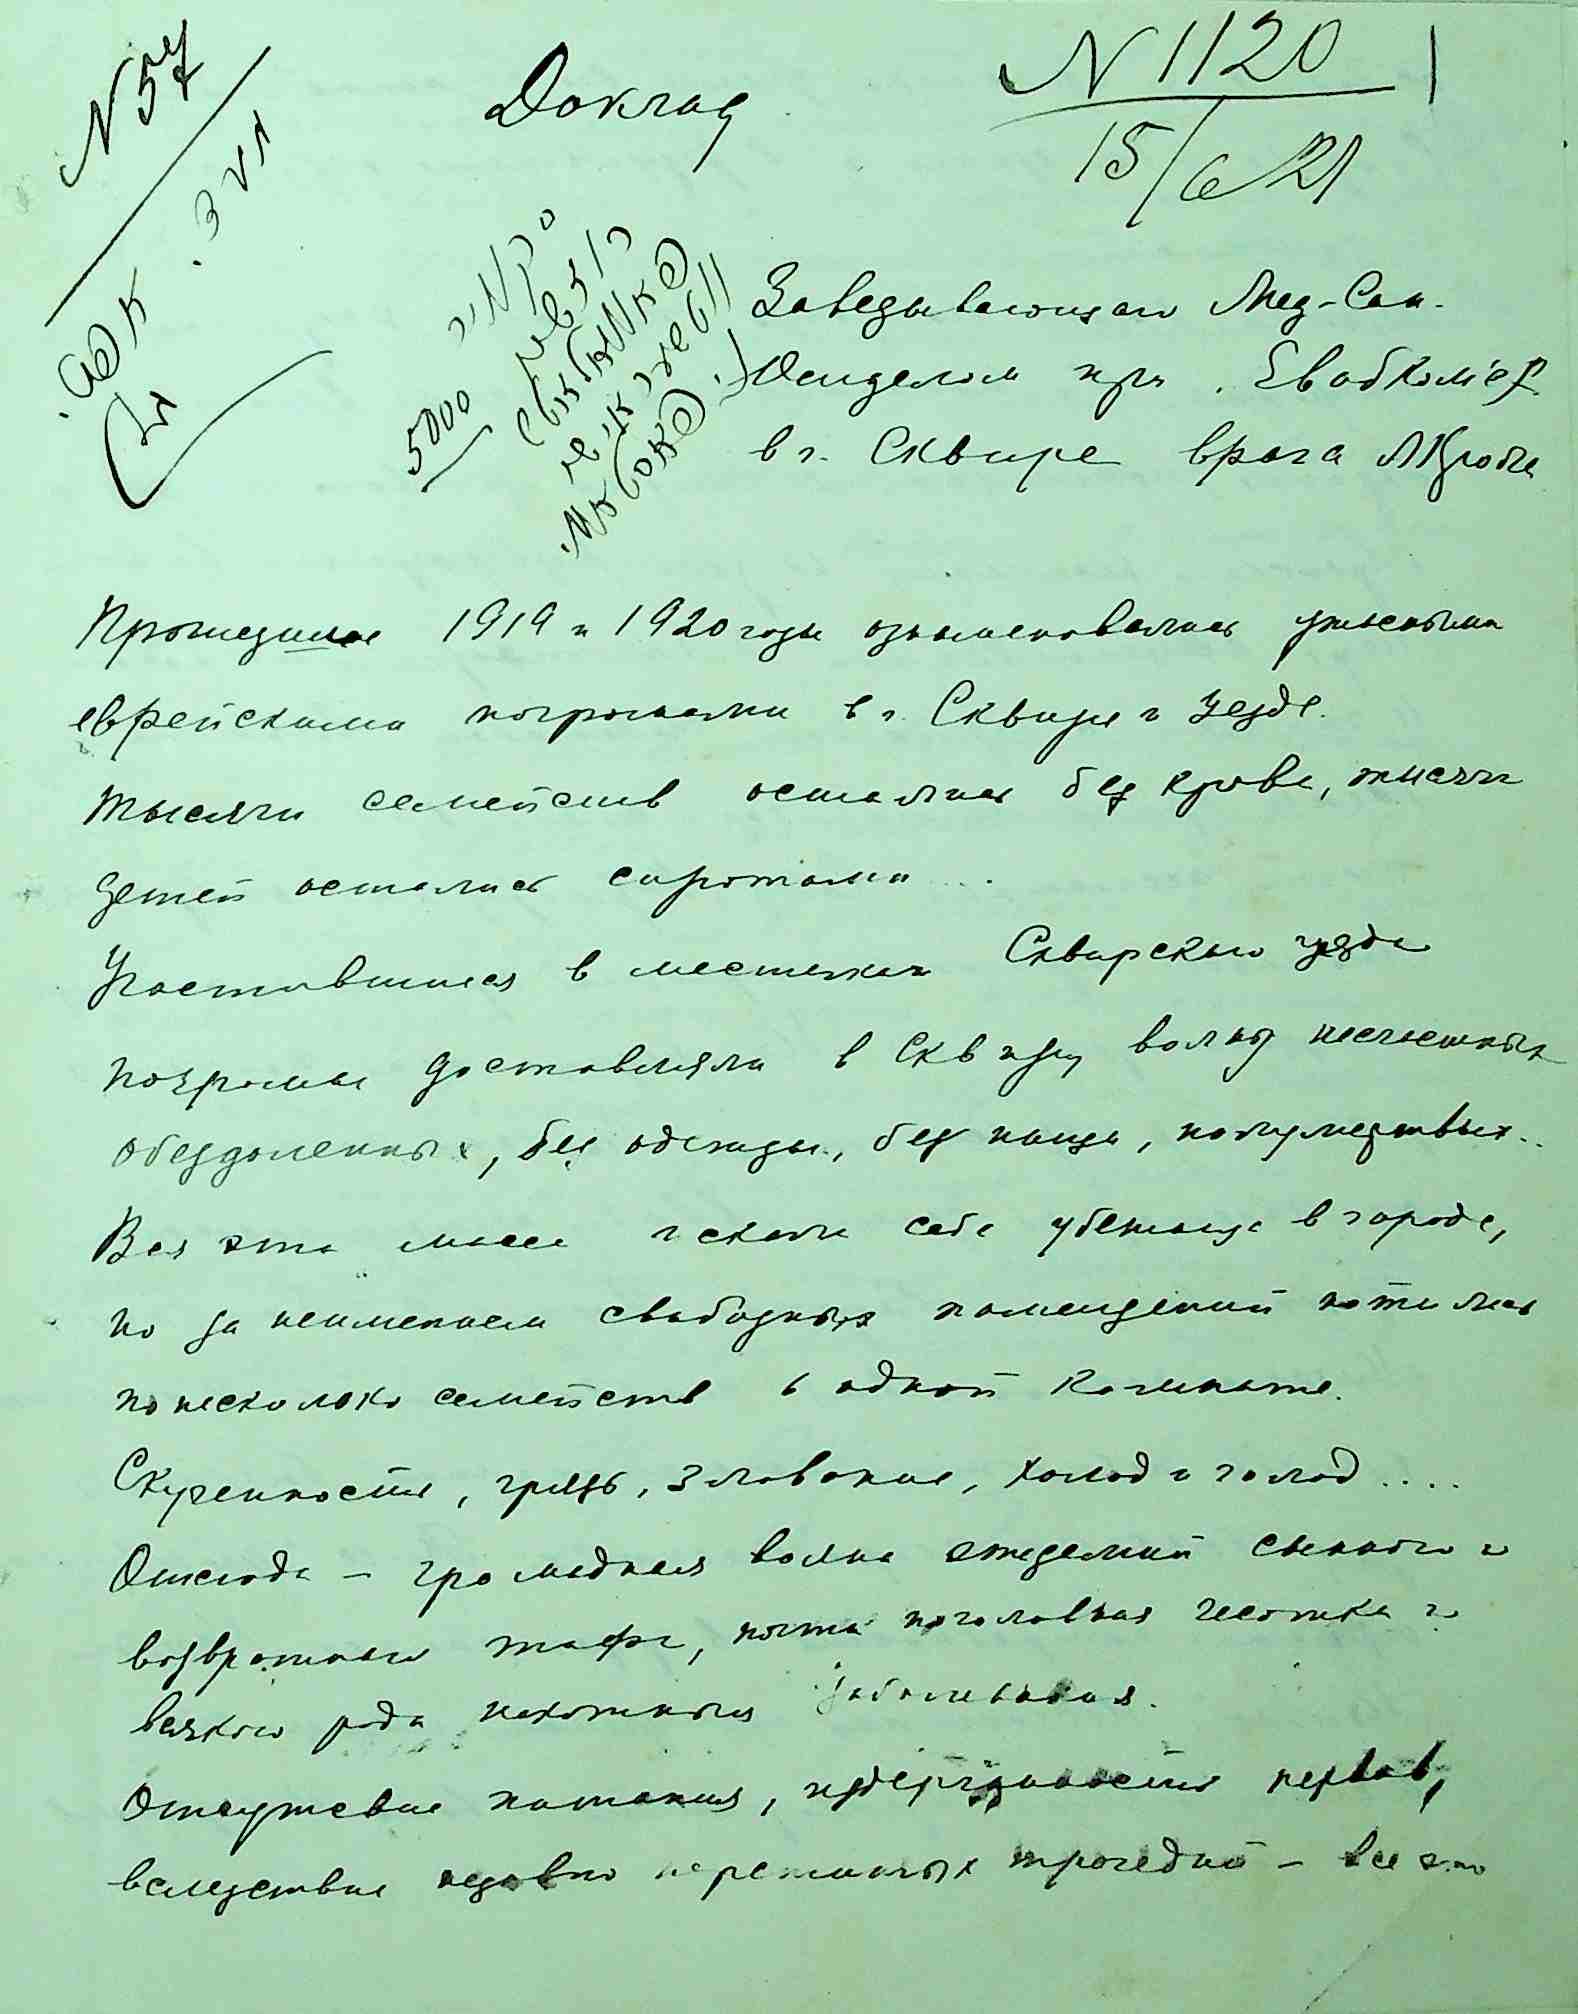 N 57
Доклад
N 1120
15/6 21
5000
Заведывающаго Мед-Сан.
Отделом при Евобком'е
в г. Сквире врача
Прошедшие 1919 и 1920 годы ознаменовались ужасными
еврейскими погромами в г. Сквире и уезде.
Тысячи семейств остались без крова, тысячи
детей остались сиротами...
Участившиеся в местечках Сквирского уезда
погромы доставляли в Сквиру волну несчастных
обездоленных, без одежды, без пищи, полумертвых..
Вся эта масса искала себе убежища в городе,
но за неимением свободных помещений ютились
по несколько семейств в одной комнате.
Скученность, грязь, зловоние, холод и голод....
Отсюда – громадная волна эпидемий сыпного и
возвратного тифа, почти поголовная чесотка и
всякого рода накожныя заболевания.
Отсутствие питания, издерганность нервов,
вследствие недавно пережитых трагедий – все это